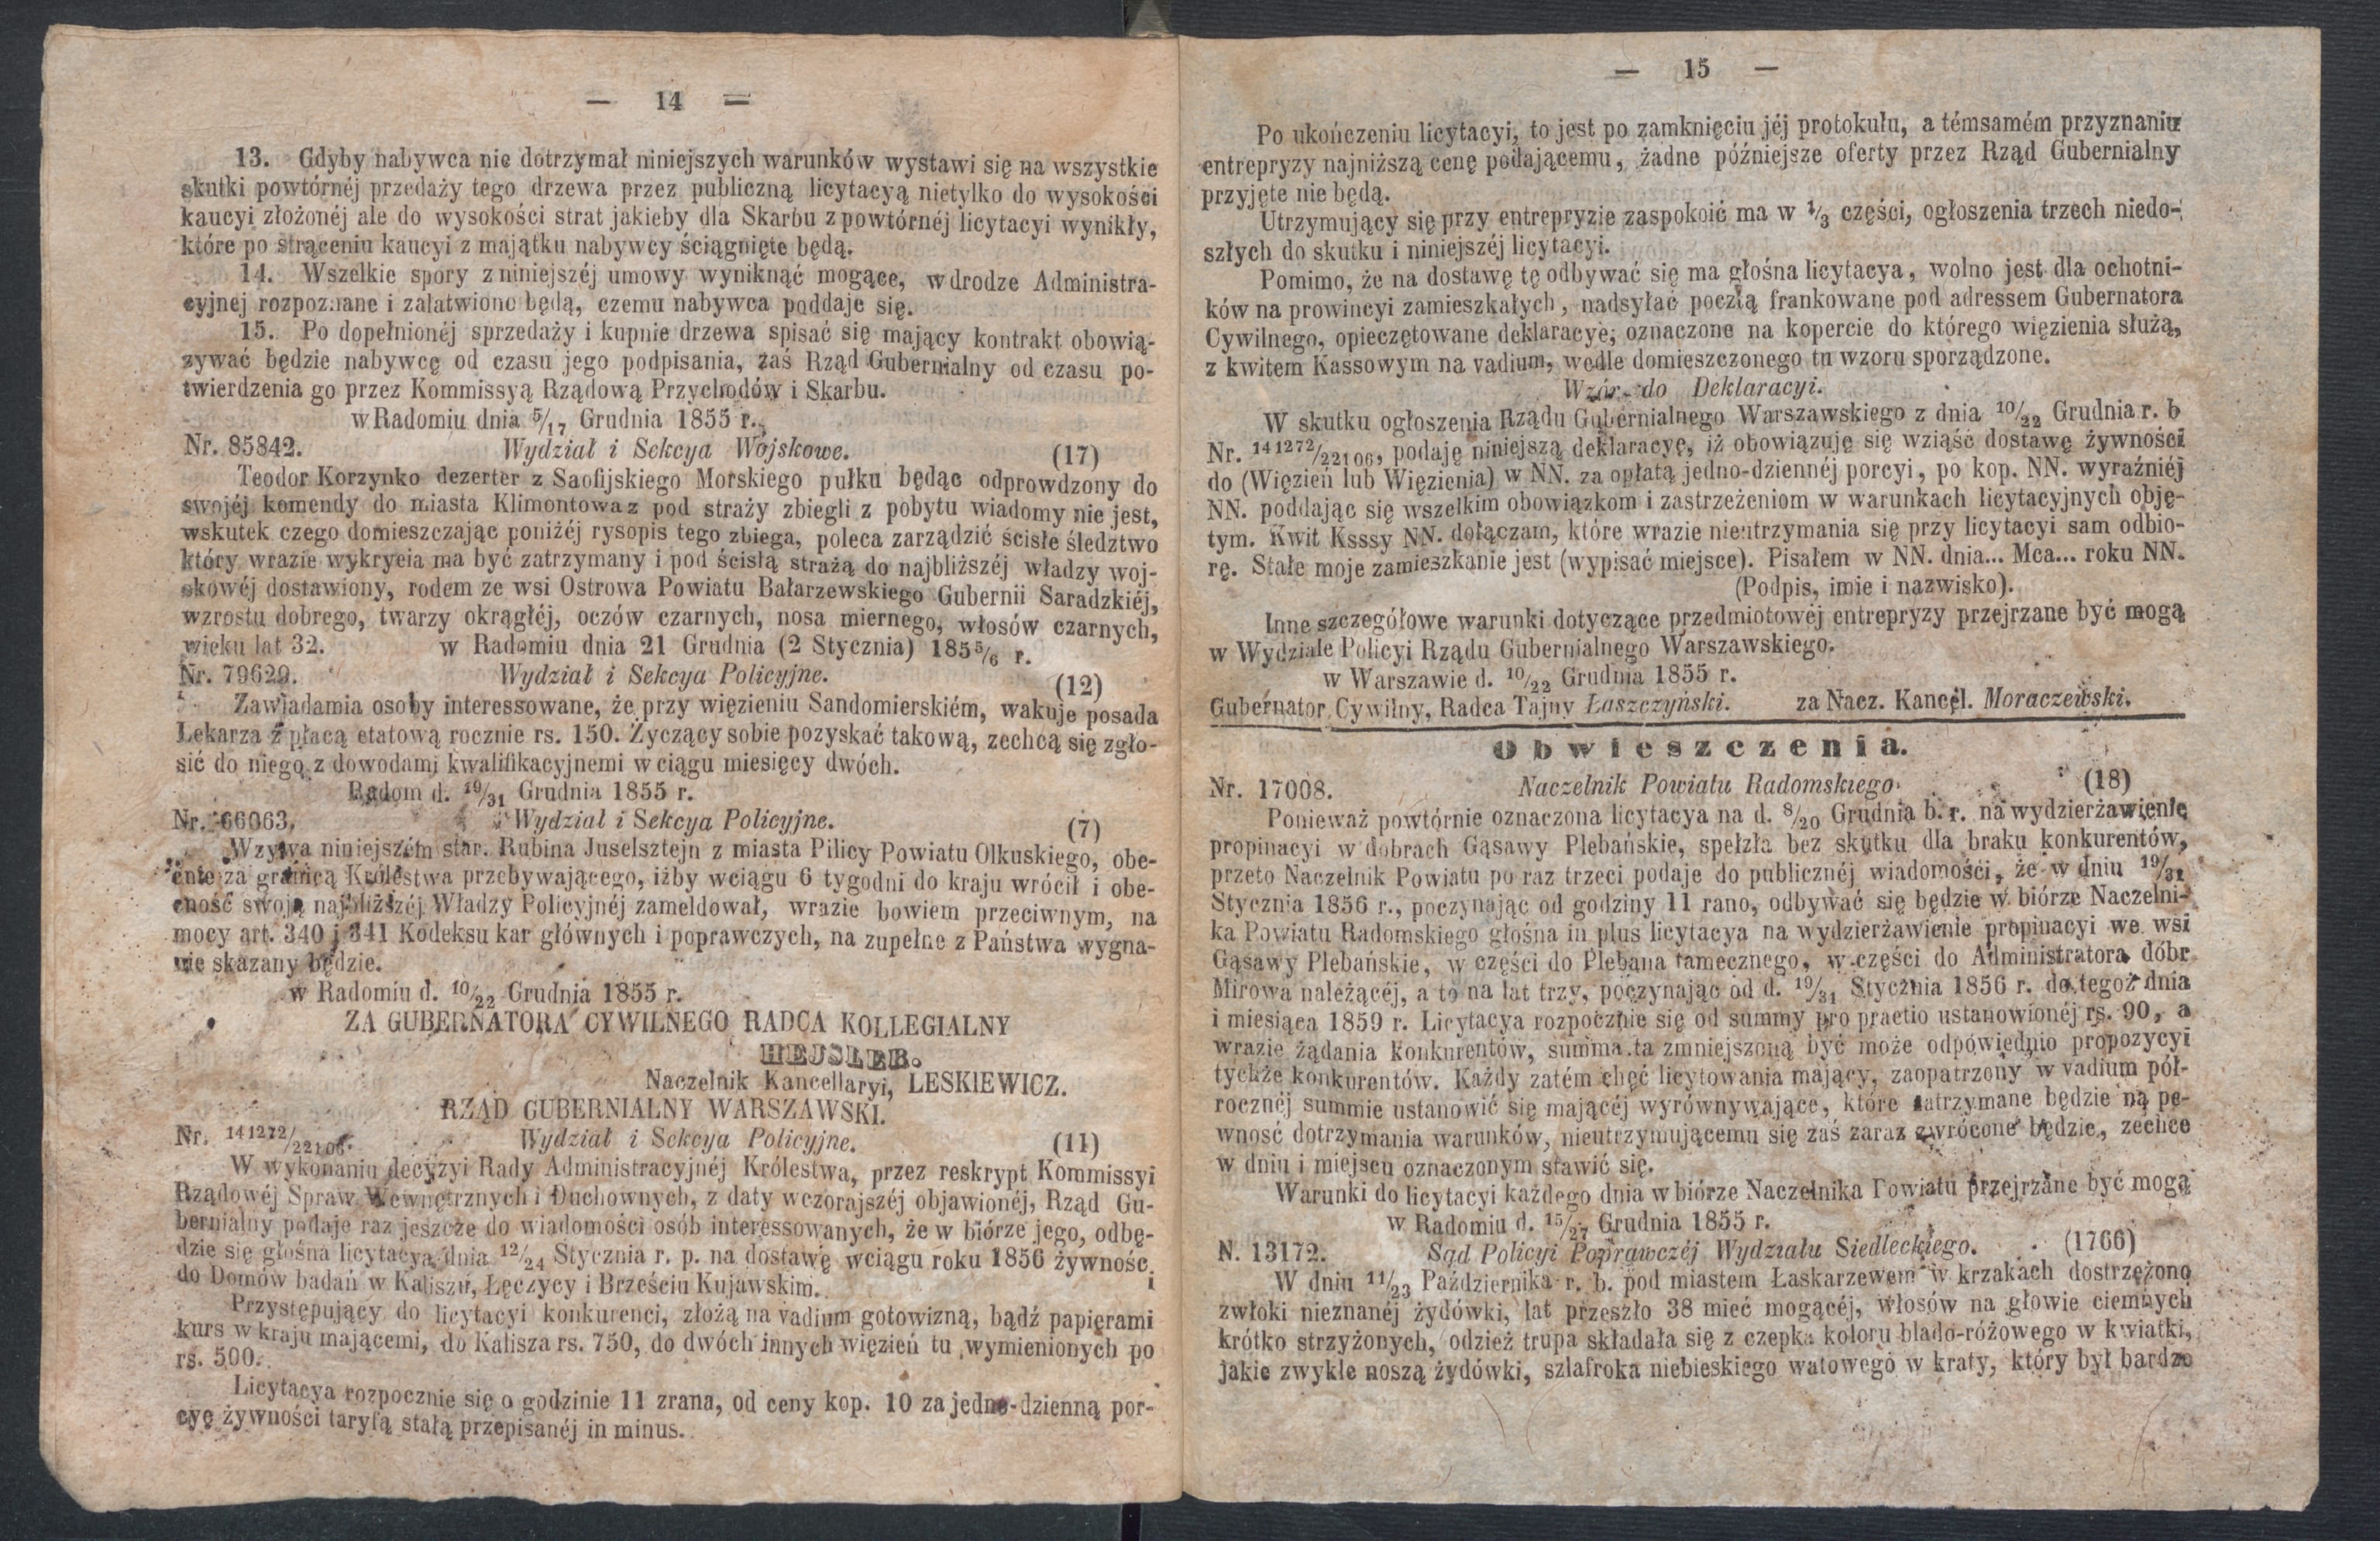 — 14 —
13. Gdyby nabywca nie dotrzymał niniejszych warunków wystawi się na wszystkie
skutki powtórnéj przedaży tego drzewa przez publiczną licytacyą nietylko do wysokości
kaucyi złożonéj ale do wysokości strat jakieby dla Skarbu z powtórnéj licytacyi wynikły,
które po strąceniu kaucyi z majątku nabywcy ściągnięte będą.
14. Wszelkie spory z niniejszéj umowy wyniknąć mogące, w drodze Administra-
cyjnej rozpoznane i załatwione będą, czemu nabywca poddaje się.
15. Po dopełnionéj sprzedaży i kupnie drzewa spisać się mający kontrakt obowią-
zywać będzie nabywcę od czasu jego podpisania, zaś Rząd Gubernialny od czasu po-
twierdzenia go przez Kommissyą Rządową Przychodów i Skarbu.
w Radomiu dnia 5/17 Grudnia 1855 r.
Nr. 85842. Wydział i Sekcya Wojskowe. (17)
Teodor Korzynko dezerter z Saofijskiego Morskiego pułku będąc odprowdzony do
swojéj komendy do miasta Klimontowa z pod straży zbiegli z pobytu wiadomy nie jest,
wskutek czego domieszczając poniżéj rysopis tego zbiega, poleca zarządzić ścisłe śledztwo
który wrazie wykrycia ma być zatrzymany i pod ścisłą strażą do najbliższéj władzy woj-
skowéj dostawiony, rodem ze wsi Ostrowa Powiatu Bałarzewskiego Gubernii Saradzkiéj,
wzrostu dobrego, twarzy okrągłéj, oczów czarnych, nosa miernego, włosów czarnych,
wieku lat 32. w Radomiu dnia 21 Grudnia (2 Stycznia) 1855/6 r.
Nr. 79629. Wydział i Sekcya Policyjne. (12)
Zawiadamia osoby interessowane, że przy więzieniu Sandomierskiém, wakuje posada
Lekarza z płacą etatową rocznie rs. 150. Życzący sobie pozyskać takową, zechcą się zgło-
sić do niego z dowodami kwalifikacyjnemi w ciągu miesięcy dwóch.
Radom d. 19/31 Grudnia 1855 r.
Nr. 66063. Wydział i Sekcya Policyjne. (7)
Wzywa niniejszém star. Rubina Juselsztejn z miasta Pilicy Powiatu Olkuskiego, obe-
cnie za granicą Królestwa przebywającego, iżby wciągu 6 tygodni do kraju wrócił i obe-
cność swoją najbliższéj Władzy Policyjnéj zameldował, wrazie bowiem przeciwnym, na
mocy art. 340 i 341 Kodeksu kar głównych i poprawczych, na zupełne z Państwa wygna-
nie skazany będzie.
w Radomiu d. 10/22 Grudnia 1855 r.
ZA GUBERNATORA CYWILNEGO RADCA KOLLEGIALNY
HEJSLER.
Naczelnik Kancellaryi, LESKIEWICZ.
RZĄD GUBERNIALNY WARSZAWSKI.
Nr. 141272/22106. Wydział i Sekcya Policyjne. (11)
W wykonaniu decyzyi Rady Administracyjnéj Królestwa, przez reskrypt Kommissyi
Rządowéj Spraw Wewnętrznych i Duchownych, z daty wczorajszéj objawionéj, Rząd Gu-
bernialny podaje raz jeszcze do wiadomości osób interessowanych, że w biórze jego, odbę-
dzie się głośna licytacya dnia 12/24 Stycznia r. p. na dostawę wciągu roku 1856 żywnośc
do Domów badań w Kaliszu, Łęczycy i Brześciu Kujawskim. i
Przystępujący do licytacyi konkurenci, złożą na vadium gotowizną, bądź papierami
kurs w kraju mającemi, do Kalisza rs. 750, do dwóch innych więzień tu wymienionych po
rs. 500.
Licytacya rozpocznie się o godzinie 11 zrana, od ceny kop. 10 za jedno-dzienną por-
cyę żywności taryfą stałą przepisanéj in minus.
— 15 —
Po ukończeniu licytacyi, to jest po zamknięciu jéj protokułu, a témsamém przyznaniu
entrepryzy najniższą cenę podającemu, żadne późniejsze oferty przez Rząd Gubernialny
przyjęte nie będą.
Utrzymujący się przy entrepryzie zaspokoić ma w 1/3 części, ogłoszenia trzech niedo-
szłych do skutku i niniejszéj licytacyi.
Pomimo, że na dostawę tę odbywać się ma głośna licytacya, wolno jest dla ochotni-
ków na prowincyi zamieszkałych, nadsyłać pocztą frankowane pod adressem Gubernatora
Cywilnego, opieczętowane deklaracye; oznaczone na kopercie do którego więzienia służą,
z kwitem Kassowym na vadium, wedle domieszczonego tu wzoru sporządzone.
Wzór do Deklaracyi.
W skutku ogłoszenia Rządu Gubernialnego Warszawskiego z dnia 10/22 Grudnia r. b
Nr. 141272/22106, podaję niniejszą deklaracyę, iż obowiązuję się wziąść dostawę żywności
do (Więzień lub Więzienia) w NN. za opłatą jedno-dziennéj porcyi, po kop. NN. wyraźniéj
NN. poddając się wszelkim obowiązkom i zastrzeżeniom w warunkach licytacyjnych obję-
tym. Kwit Ksssy NN. dołączam, które wrazie nieutrzymania się przy licytacyi sam odbio-
rę. Stałe moje zamieszkanie jest (wypisać miejsce). Pisałem w NN. dnia... Mca... roku NN.
(Podpis, imie i nazwisko).
Inne szczegółowe warunki dotyczące przedmiotowéj entrepryzy przejrzane być mogą
w Wydziale Policyi Rządu Gubernialnego Warszawskiego.
w Warszawie d. 10/22 Grudnia 1855 r.
Gubernator Cywilny, Radca Tajny Łaszczyński. za Nacz. Kancel. Moraczewski.
Obwieszczenia.
Nr. 17008. Naczelnik Powiatu Radomskiego. (18)
Ponieważ powtórnie oznaczona licytacya na d. 8/20 Grudnia b. r. na wydzierżawienie
propinacyi w dobrach Gąsawy Plebańskie, spełzła bez skutku dla braku konkurentów,
przeto Naczelnik Powiatu po raz trzeci podaje do publicznéj wiadomości, że w dniu 19/31
Stycznia 1856 r., poczynając od godziny 11 rano, odbywać się będzie w biórze Naczelni-
ka Powiatu Radomskiego głośna in plus licytacya na wydzierżawienie propinacyi we wsi
Gąsawy Plebańskie, w części do Plebana tamecznego, w części do Administratora dóbr
Mirowa należącéj, a to na lat trzy, poczynając od d. 19/31 Stycznia 1856 r. do tegoż dnia
i miesiąca 1859 r. Licytacya rozpocznie się od summy pro praetio ustanowionéj rs. 90, a
wrazie żądania konkurentów, summa ta zmniejszoną być może odpowiednio propozycyi
tychże konkurentów. Każdy zatém chęć licytowania mający, zaopatrzony w vadium pół-
rocznéj summie ustanowić się mającéj wyrównywające, które zatrzymane będzie na pe-
wność dotrzymania warunków, nieutrzymującemu się zaś zaraz zwrócone będzie, zechce
w dniu i miejscu oznaczonym stawić się.
Warunki do licytacyi każdego dnia w biórze Naczelnika Powiatu przejrzane być mogą
w Radomiu d. 15/27 Grudnia 1855 r.
N. 13172. Sąd Policyi Poprawczéj Wydziału Siedleckiego. (1766)
W dniu 11/23 Października r. b. pod miastem Łaskarzewem w krzakach dostrzeżono
zwłoki nieznanéj żydówki, lat przeszło 38 mieć mogącéj, włosów na głowie ciemnych
krótko strzyżonych, odzież trupa składała się z czepka koloru blado-różowego w kwiatki,
jakie zwykle noszą żydówki, szlafroka niebieskiego watowego w kraty, który był bardzo